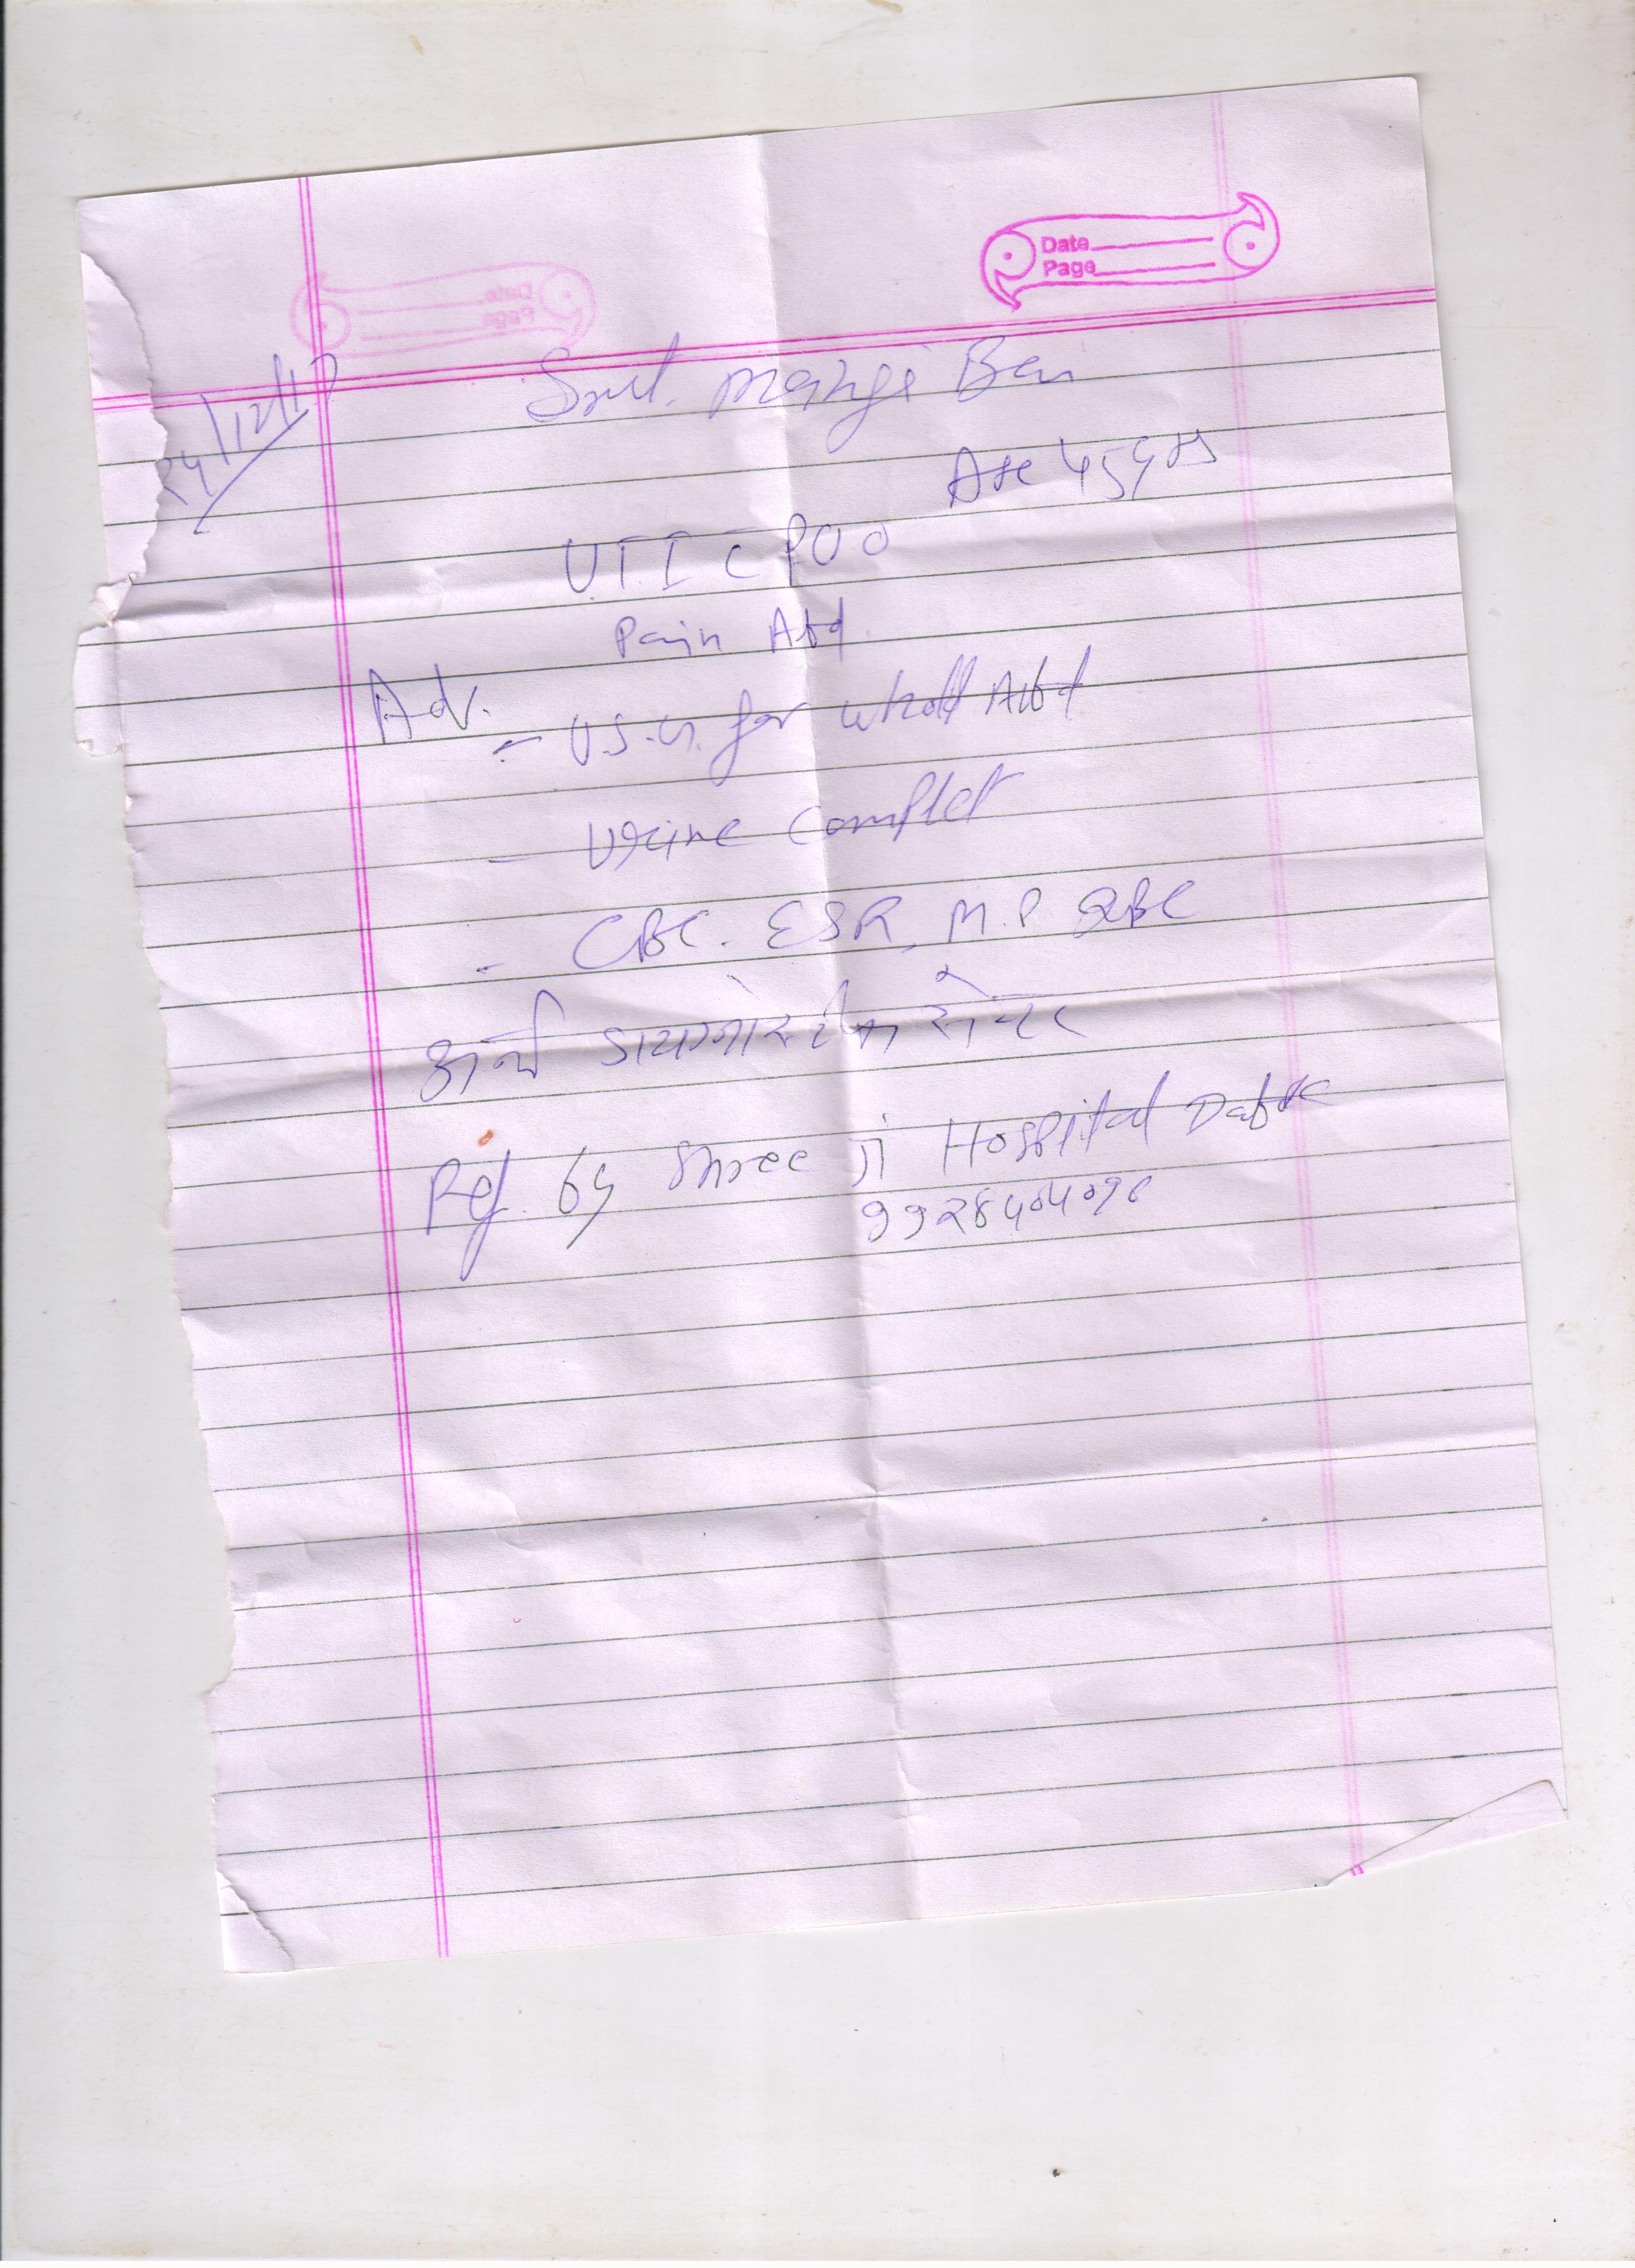 Date
Page
24/12/17
Smt. Mangi Bai
Age 45 yrs
U.T.I C PUO
Pain Abd.
Adv.
- U.S.G. for whole Abd
- Urine Complet
- CBC. ESR, M.P. QBC
डायग्नोस्टीक सेन्टर
Ref. by Shree Ji Hospital